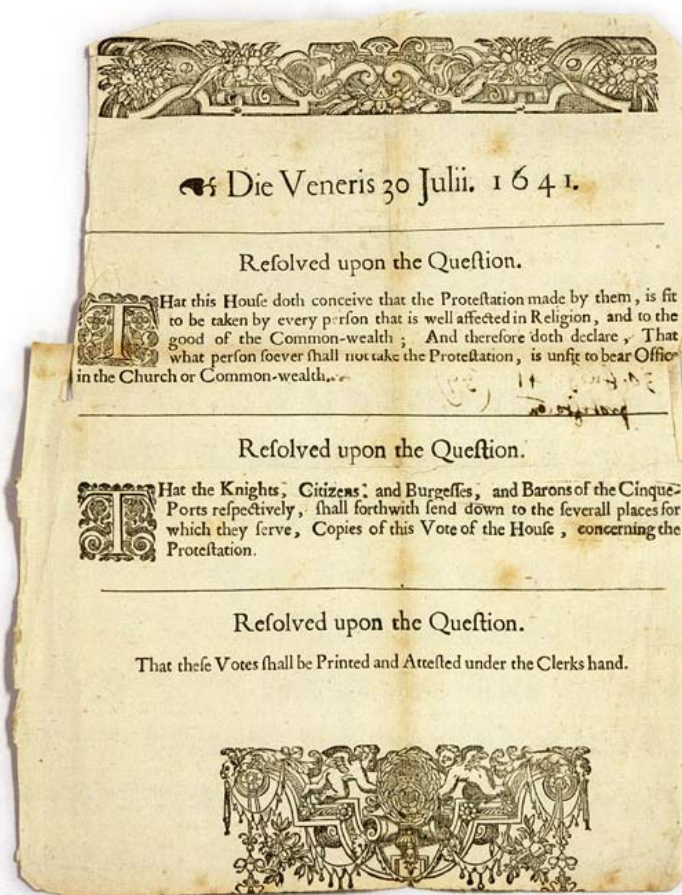 Die Veneris 30 Julii. 1641.
Reſolved upon the Queſtion.
THat this Houſe doth conceive that the Proteſtation made by them, is fit
to be taken by every perſon that is well affected in Religion, and to the
good of the Common-wealth ; And therefore doth declare, That
what perſon ſoever ſhall not take the Proteſtation, is unfit to bear Office
in the Church or Common-wealth.
Reſolved upon the Queſtion.
THat the Knights, Citizens, and Burgeſſes, and Barons of the Cinque-
Ports reſpectively, ſhall forthwith ſend down to the ſeverall places for
which they ſerve, Copies of this Vote of the Houſe, concerning the
Proteſtation.
Reſolved upon the Queſtion.
That theſe Votes ſhall be Printed and Atteſted under the Clerks hand.